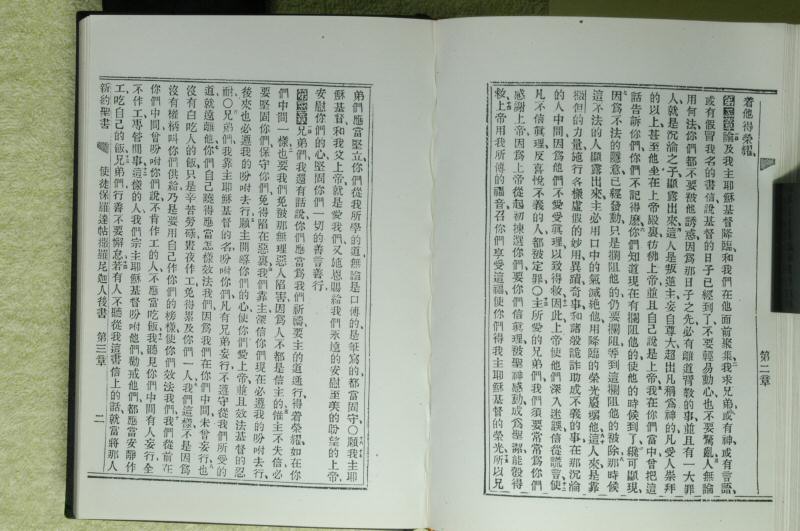 第二章
着他得榮耀、
第二章論及我主耶穌基督降臨、和我們在他面前聚集、我求兄弟、或有神、或有言語
或有假冒我名的書信、說基督的日子已經到了、不要輕易動心、也不要驚亂、人無論
用何法、你們都不要被他誘惑、因爲那日子之先、必有離道背敎的事、並且有一大罪
人、就是沉淪之子、顯露出來、這人是叛逆主、妄自尊大、超出凡稱爲神的、凡受人崇拜
的以上、甚至他坐在上帝殿裏、彷彿上帝、並且自己說是上帝、我在你們當中、曾把這
話吿訴你們、你們不記得麼、你們知道現在有攔阻他的、使他的時候到了、纔可顯現、
因爲不法的隱意、已經發動、只是攔阻他的仍要攔阻、等到這攔阻他的被除、那時候
這不法的人、顯露出來、主必用口中的氣滅絕他、用降臨的榮光廢壞他、這人來是靠
撒但的力量、施行各樣虛假的妙用異蹟奇事、和諸般詭詐、助成不義的事、在那沉淪
的人中間、因爲他們不愛眞理、以致得救、因此上帝使他們深入迷誤、信從謊言、使
凡不信眞理反喜悅不義的人、都被定罪○主所愛的兄弟們、我們須要常常爲你們
感謝上帝、因爲上帝從起初揀選你們、要你們信眞理、被聖神感動、成爲聖潔、能彀得
救、上帝用我所傳的福音、召你們享受這福、使你們得我主耶穌基督的榮光、所以兄
弟們、應當堅立、你們從我所學的道、無論是口傳的、是筆寫的、都當固守○願我主耶
穌基督、和我父上帝、就是愛我們、又施恩賜給我們永遠的安慰、至美的盼望的上帝、
安慰你們的心、堅固你們一切的善言善行、
第三章兄弟們、我還有話說、你們應當爲我們祈禱、要主的道通行、得着榮耀、如在你
們中間一樣、也要我們免被那無理惡人陷害、因爲人不都是信主的、惟主不失信、必
要堅固你們、保守你們、免得陷在惡裏、我們靠主、深信你們現在必遵我的吩咐去行、
後來也必遵我的吩咐去行、願主開導你們的心、使你們愛上帝、並且效法基督的忍
耐○兄弟們、我靠主耶穌基督的名、吩咐你們、凡有兄弟妄行、不遵守從我們所受的
道、就遠離他、你們自己曉得應當怎樣效法我們、因爲我們在你們中間、未曾妄行、也
沒有白吃人的飯、只是辛苦勞碌、晝夜作工、免得累及你們一人、我們這樣、不是因爲
沒有權柄、叫你們供給、乃是要用自己作你們的榜樣、使你們效法我們、我們從前在
你們中間、曾吩咐你們說、不肯作工的人、不應當吃飯、我聽見你們中間有人妄行、全
不作工、專管閒事、這樣的人、我們宗主耶穌基督、吩咐他們、勸戒他們、都應當安靜作
工、吃自己的飯、兄弟們、行善不要懈怠、若有人不聽從我這書信上的話、就當將那人
新約聖書　使徒保羅達帖撒羅尼迦人後書　第三章　二